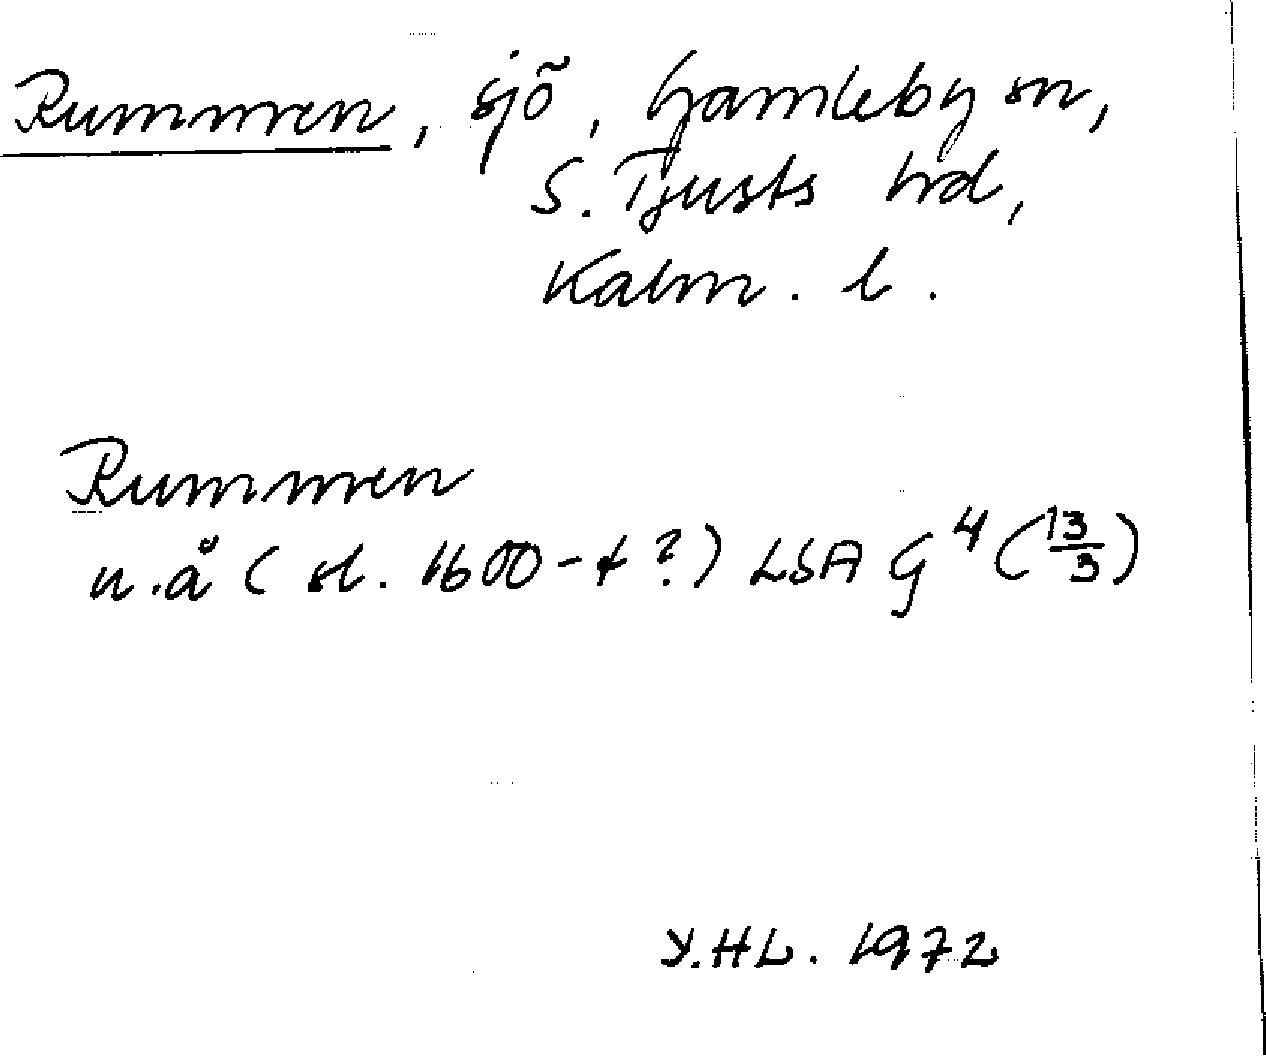 Rummen, sjö, Gamleby sn,
S. Tjusts hd,
Kalm. l.
Rummen
u.å (sl. 1600-t?) LSA G⁴ (13/3)
Y.HL. 1972